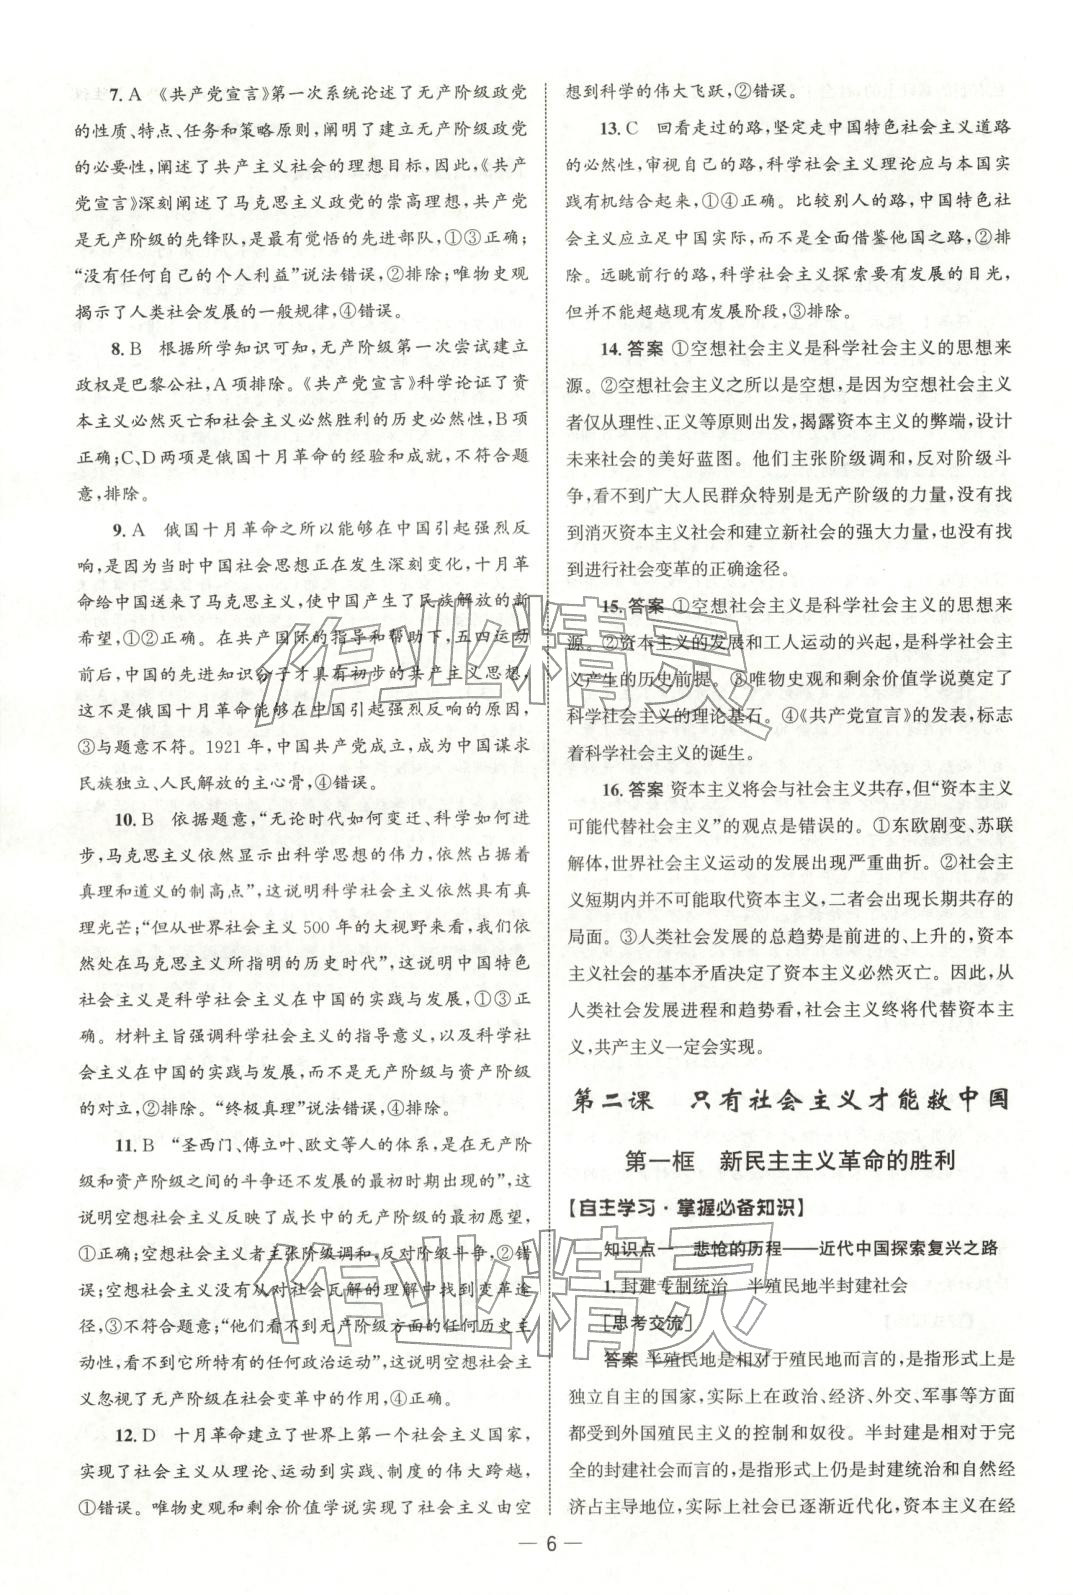 7. A　《共产党宣言》第一次系统论述了无产阶级政党
的性质、特点、任务和策略原则,阐明了建立无产阶级政党
的必要性,阐述了共产主义社会的理想目标,因此,《共产
党宣言》深刻阐述了马克思主义政党的崇高理想,共产党
是无产阶级的先锋队,是最有觉悟的先进部队,①③正确;
“没有任何自己的个人利益”说法错误,②排除;唯物史观
揭示了人类社会发展的一般规律,④错误。
8. B　根据所学知识可知,无产阶级第一次尝试建立
政权是巴黎公社,A项排除。《共产党宣言》科学论证了资
本主义必然灭亡和社会主义必然胜利的历史必然性,B项
正确;C、D两项是俄国十月革命的经验和成就,不符合题
意,排除。
9. A　俄国十月革命之所以能够在中国引起强烈反
响,是因为当时中国社会思想正在发生深刻变化,十月革
命给中国送来了马克思主义,使中国产生了民族解放的新
希望,①②正确。在共产国际的指导和帮助下,五四运动
前后,中国的先进知识分子才具有初步的共产主义思想,
这不是俄国十月革命能够在中国引起强烈反响的原因,
③与题意不符。1921年,中国共产党成立,成为中国谋求
民族独立、人民解放的主心骨,④错误。
10. B　依据题意,“无论时代如何变迁、科学如何进
步,马克思主义依然显示出科学思想的伟力,依然占据着
真理和道义的制高点”,这说明科学社会主义依然具有真
理光芒;“但从世界社会主义500年的大视野来看,我们依
然处在马克思主义所指明的历史时代”,这说明中国特色
社会主义是科学社会主义在中国的实践与发展,①③正
确。材料主旨强调科学社会主义的指导意义,以及科学社
会主义在中国的实践与发展,而不是无产阶级与资产阶级
的对立,②排除。“终极真理”说法错误,④排除。
11. B　“圣西门、傅立叶、欧文等人的体系,是在无产阶
级和资产阶级之间的斗争还不发展的最初时期出现的”,这
说明空想社会主义反映了成长中的无产阶级的最初愿望,
①正确;空想社会主义者主张阶级调和,反对阶级斗争,②错
误;空想社会主义者没有从对社会瓦解的理解中找到变革途
径,③不符合题意;“他们看不到无产阶级方面的任何历史主
动性,看不到它所特有的任何政治运动”,这说明空想社会主
义忽视了无产阶级在社会变革中的作用,④正确。
12. D　十月革命建立了世界上第一个社会主义国家,
实现了社会主义从理论、运动到实践、制度的伟大跨越,
①错误。唯物史观和剩余价值学说实现了社会主义由空
想到科学的伟大飞跃,②错误。
13. C　回看走过的路,坚定走中国特色社会主义道路
的必然性,审视自己的路,科学社会主义理论应与本国实
践有机结合起来,①④正确。比较别人的路,中国特色社
会主义应立足中国实际,而不是全面借鉴他国之路,②排
除。远眺前行的路,科学社会主义探索要有发展的目光,
但并不能超越现有发展阶段,③排除。
14. 答案　①空想社会主义是科学社会主义的思想来
源。②空想社会主义之所以是空想,是因为空想社会主义
者仅从理性、正义等原则出发,揭露资本主义的弊端,设计
未来社会的美好蓝图。他们主张阶级调和,反对阶级斗
争,看不到广大人民群众特别是无产阶级的力量,没有找
到消灭资本主义社会和建立新社会的强大力量,也没有找
到进行社会变革的正确途径。
15. 答案　①空想社会主义是科学社会主义的思想来
源。②资本主义的发展和工人运动的兴起,是科学社会主
义产生的历史前提。③唯物史观和剩余价值学说奠定了
科学社会主义的理论基石。④《共产党宣言》的发表,标志
着科学社会主义的诞生。
16. 答案　资本主义将会与社会主义共存,但“资本主义
可能代替社会主义”的观点是错误的。①东欧剧变、苏联
解体,世界社会主义运动的发展出现严重曲折。②社会主
义短期内不可能取代资本主义,二者会出现长期共存的
局面。③人类社会发展的总趋势是前进的、上升的,资本
主义社会的基本矛盾决定了资本主义必然灭亡。因此,从
人类社会发展进程和趋势看,社会主义终将代替资本主
义,共产主义一定会实现。
第二课　只有社会主义才能救中国
第一框　新民主主义革命的胜利
【自主学习·掌握必备知识】
知识点一　悲怆的历程——近代中国探索复兴之路
1. 封建专制统治　半殖民地半封建社会
[思考交流]
答案　半殖民地是相对于殖民地而言的,是指形式上是
独立自主的国家,实际上在政治、经济、外交、军事等方面
都受到外国殖民主义的控制和奴役。半封建是相对于完
全的封建社会而言的,是指形式上仍是封建统治和自然经
济占主导地位,实际上社会已逐渐近代化,资本主义在经
— 6 —
作业精灵
作业精灵